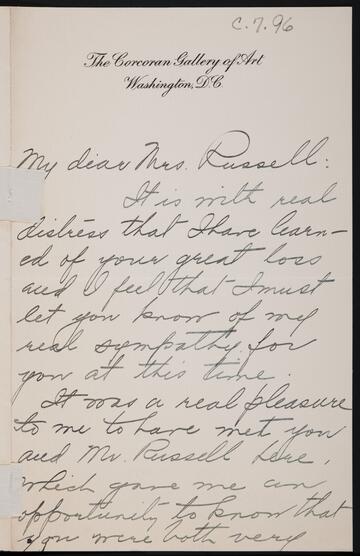 C.7.96
The Corcoran Gallery of Art
Washington, D.C.
My dear Mrs. Russell:
It is with real
distress that I have learn-
ed of your great loss
and I feel that I must
let you know of my
real sympathy for
you at this time.
It was a real pleasure
to me to have met you
and Mr. Russell here,
which gave me an
opportunity to know that
you were both very